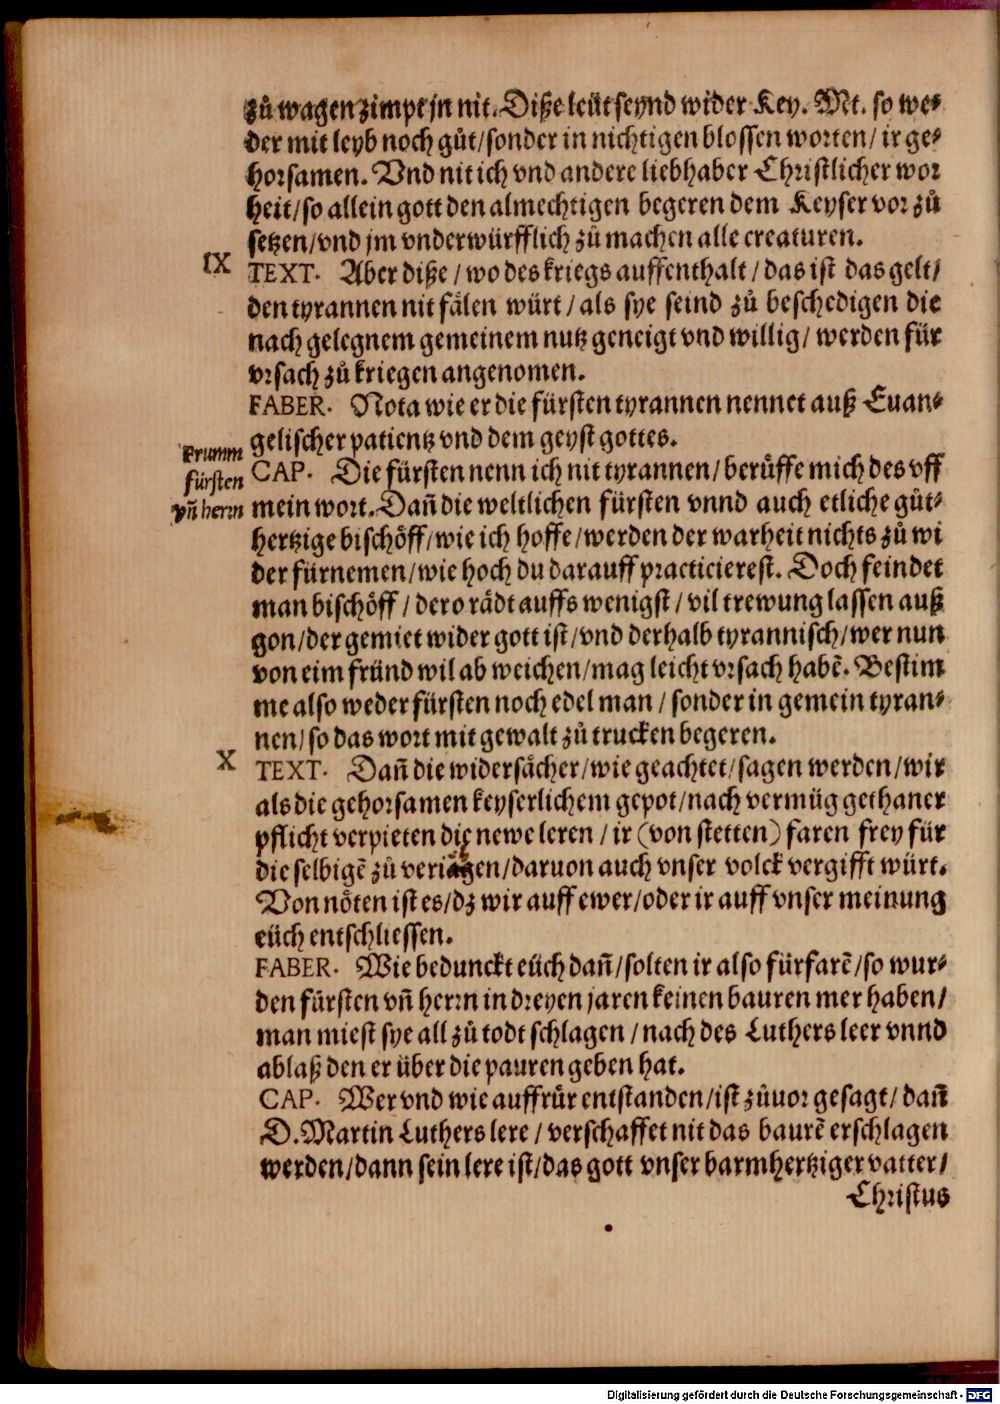 zů wagen zimpt jn nit. Diße leüt seynd wider Key. Mt. so we⸗
der mit leyb noch gůt/sonder in nichtigen blossen worten/ ir ge⸗
horsamen. Vnd nit ich vnd andere liebhaber Christlicher wor
heit/so allein gott den almechtigen begeren dem Keyser vor zů
setzen/vnd jm vnderwürfflich zů machen alle creaturen.
IX TEXT. Aber diße / wo des kriegs auffenthalt / das ist das gelt/
den tyrannen nit fälen würt / als sye seind zů beschedigen die
nach gelegnem gemeinem nutz geneigt vnd willig/ werden für
vrsach zů kriegen angenomen.
FABER. Nota wie er die fürsten tyrannen nennet auß Euan⸗
gelischer patientz vnd dem geyst gottes.
Frumm
fürsten
vñ herrn
CAP. Die fürsten nenn ich nit tyrannen/ berüffe mich des vff
mein wort. Dañ die weltlichen fürsten vnnd auch etliche gůt⸗
hertzige bischöff/wie ich hoffe/werden der warheit nichts zů wi
der fürnemen/wie hoch du darauff practicierest. Doch feindet
man bischöff / dero rädt auffs wenigst / vil trewung lassen auß
gon/der gemiet wider gott ist/vnd derhalb tyrannisch/wer nun
von eim fründ wil ab weichen/mag leicht vrsach habẽ. Bestim
me also weder fürsten noch edel man / sonder in gemein tyran⸗
nen/ so das wort mit gewalt zů trucken begeren.
X TEXT. Dañ die widersächer/wie geachtet/sagen werden/wir
als die gehorsamen keyserlichem gepot/nach vermüg gethaner
pflicht verpieten die newe leren / ir (von stetten) faren frey für
die selbigẽ zů veriägen/daruon auch vnser volck vergifft würt.
Von nöten ist es/dz wir auff ewer/oder ir auff vnser meinung
eüch entschliessen.
FABER. Wie bedunckt eüch dañ/solten ir also fürfarẽ/so wur⸗
den fürsten vñ herrn in dreyen jaren keinen bauren mer haben/
man miest sye all zů todt schlagen / nach des Luthers leer vnnd
ablaß den er über die pauren geben hat.
CAP. Wer vnd wie auffrůr entstanden/ist zůuor gesagt/ dañ
D. Martin Luthers lere / verschaffet nit das baurẽ erschlagen
werden/dann sein lere ist/das gott vnser barmhertziger vatter/
Christus
Digitalisierung gefördert durch die Deutsche Forschungsgemeinschaft - DFG